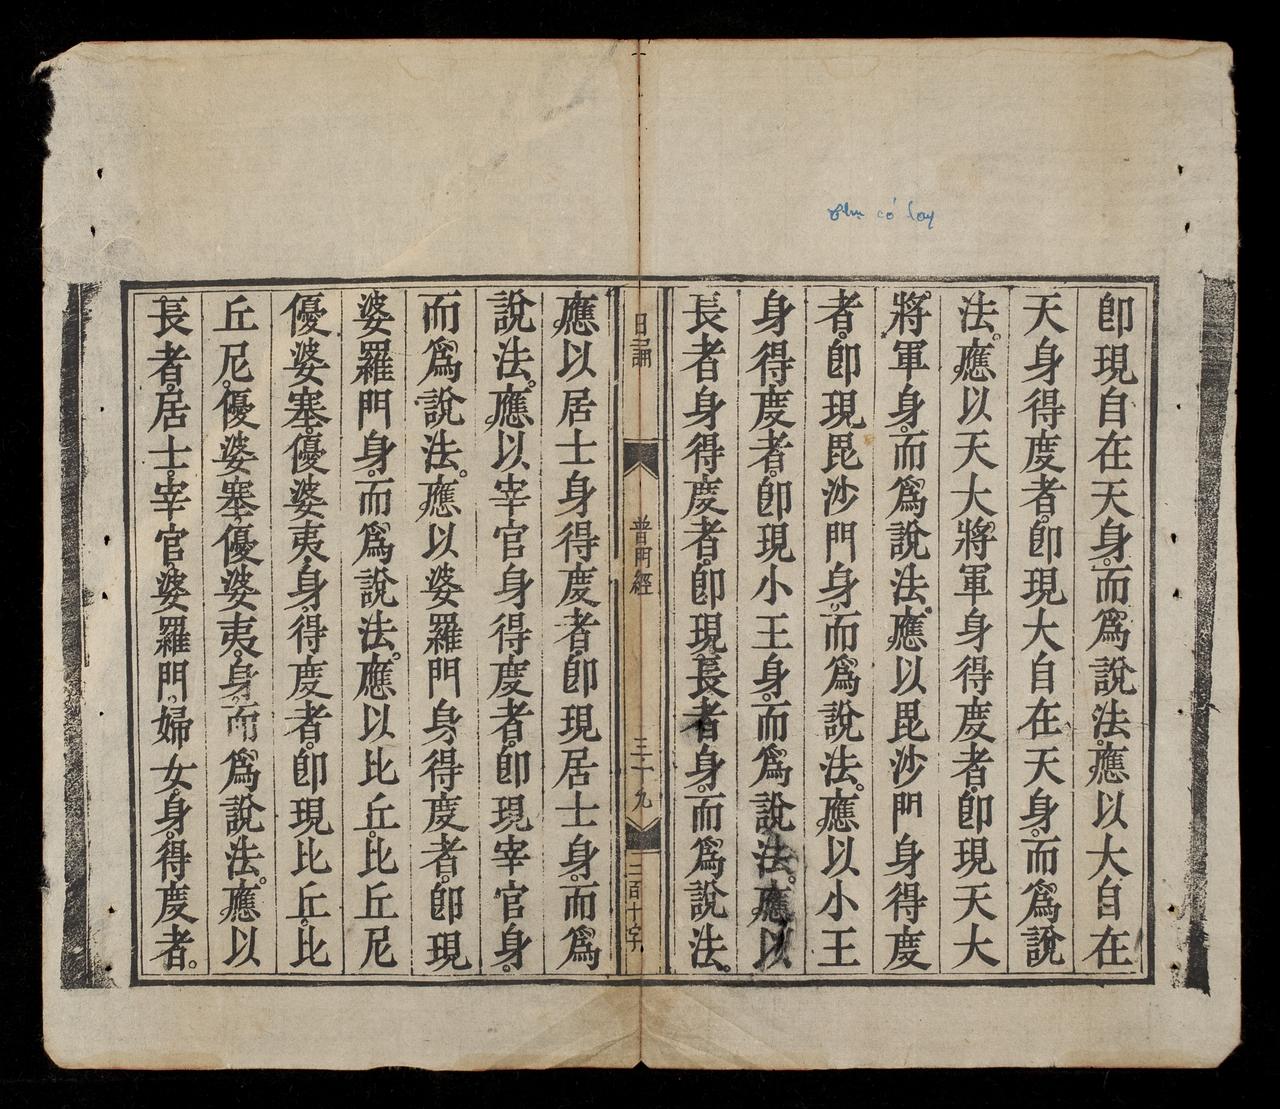 即現自在天身。而爲說法。應以大自在
天身得度者。即現大自在天身。而爲說
法。應以天大將軍身得度者。即現天大
將軍身。而爲說法。應以毘沙門身得度
者。即現毘沙門身。而爲說法。應以小王
身得度者。即現小王身。而爲說法。應以
長者身得度者。即現長者身。而爲說法。
日誦 普門經 三十九 二百十字
應以居士身得度者。即現居士身。而爲
說法。應以宰官身得度者。即現宰官身。
而爲說法。應以婆羅門身得度者。即現
婆羅門身。而爲說法。應以比丘。比丘尼
優婆塞。優婆夷身。得度者。即現比丘。比
丘尼。優婆塞。優婆夷。身。而爲說法。應以
長者。居士。宰官。婆羅門。婦女。身。得度者。